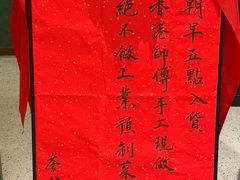 朝早五點入貨
香港師傅手工現做
絕不做工業預制菜